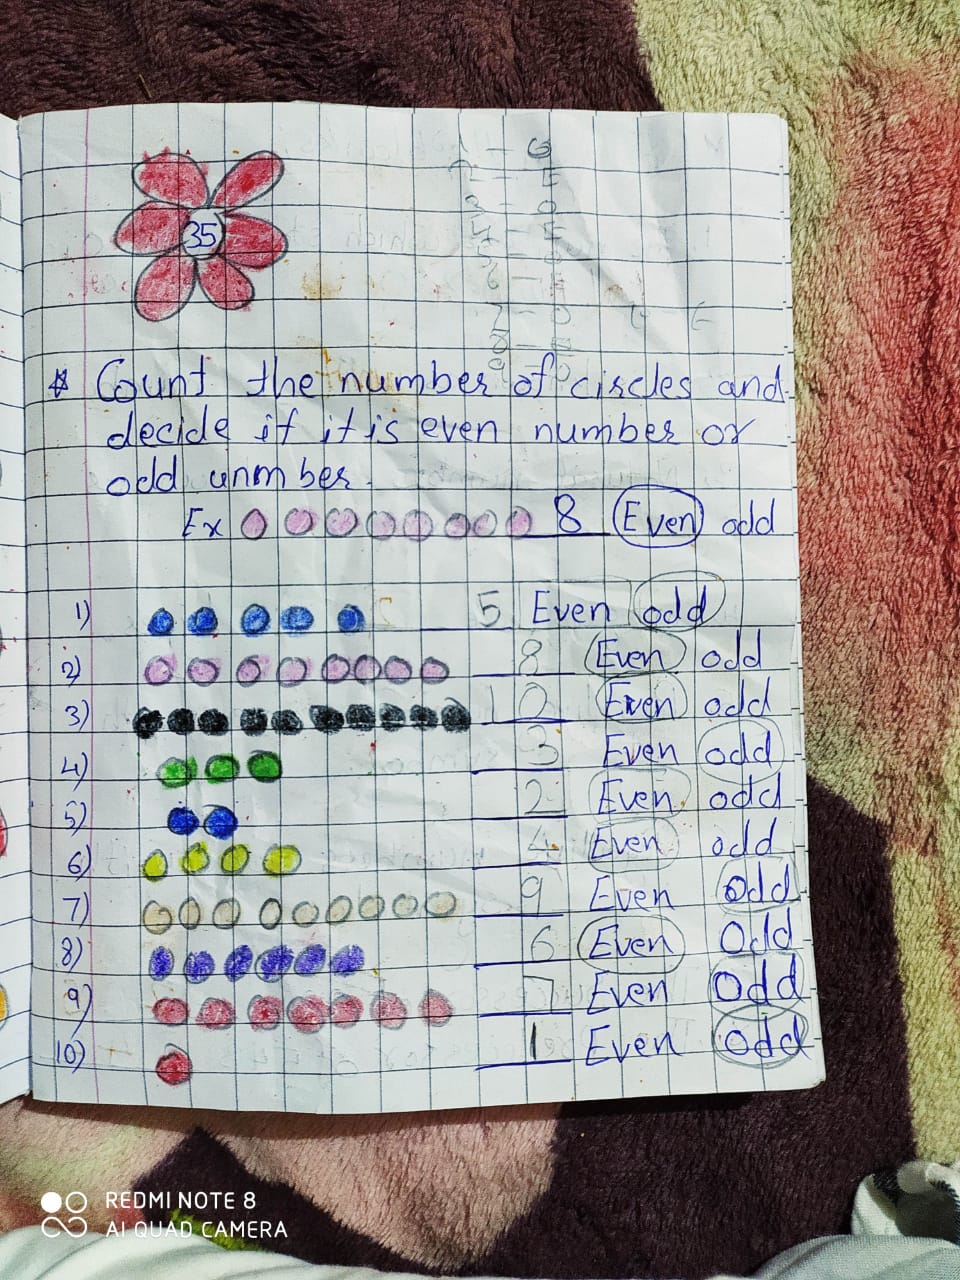 35
* Count the number of circles and
decide if it is even number or
odd unmber.
Ex 8 Even odd
1) 5 Even odd
2) 8 Even odd
3) 10 Even odd
4) 3 Even odd
5) 2 Even odd
6) 4 Even odd
7) 9 Even Odd
8) 6 Even Odd
9) 7 Even Odd
10) 1 Even Odd
REDMI NOTE 8
AI QUAD CAMERA